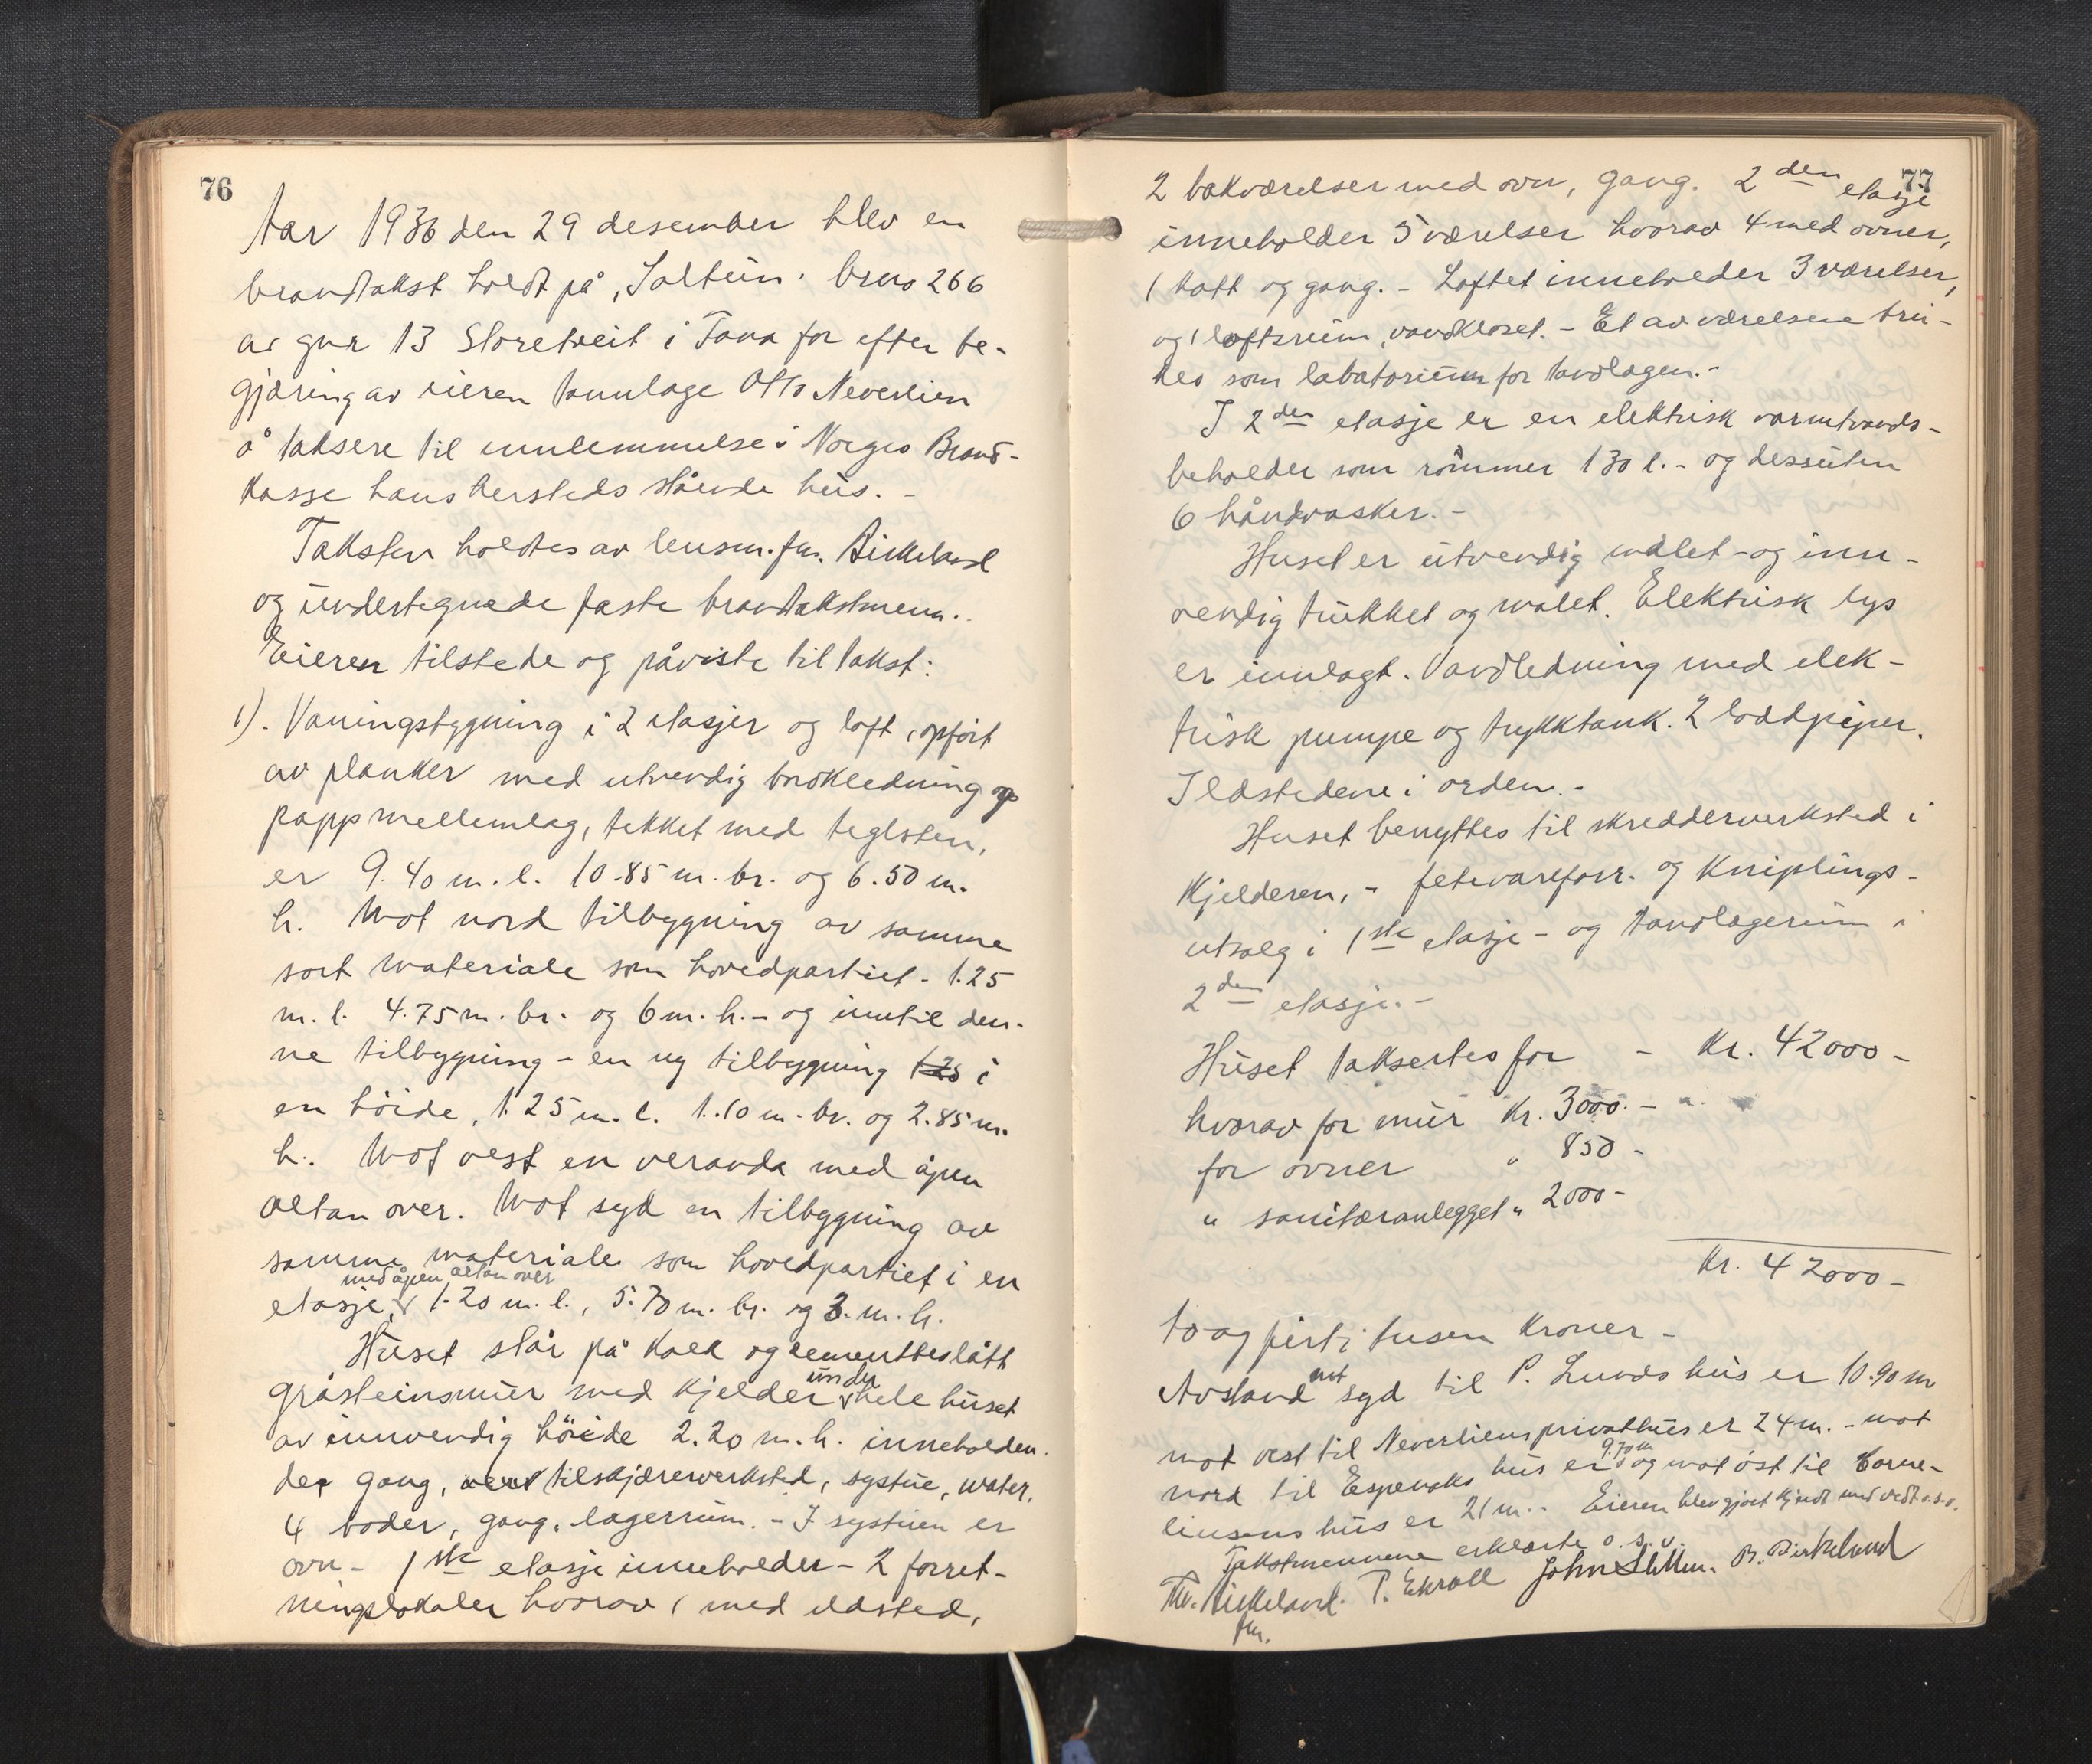 76
Aar 1936 den 29 desember blev en
brandtakst holdt på „Soltun" brno 266
av gnr 13 Storetveit i Fana for efter be-
gjæring av eieren tannlæge Otto Neverlien
å taksere til innlemmelse i Norges Brand-
kasse hans hersteds stående hus. -
Taksten holdtes av lensm. fm. Birkeland
og undertegnede faste brandtakstmenn.
Eieren tilstede og påviste til takst:
1). Vaningsbygning i 2 etasjer og loft, opført
av planker med utvendig bordkledning og
papp mellemlag, tekket med teglsten,
er 9.40 m. l. 10.85 m. br. og 6.50 m.
h. Mot nord tilbygning av samme
sort materiale som hovedpartiet - 1.25
m. l. 4.75 m. br. og 6 m. h. - og inntil den-
ne tilbygning - en ny tilbygning 125 i
en høide, 1.25 m. l. 1.10 m. br. og 2.85 m.
h. Mot vest en veranda med åpen
altan over. Mot syd en tilbygning av
samme materiale som hovedpartiet i en
med åpen altan over
etasje, 1.20 m. l., 5.70 m. br. og 3. m. h.
Huset står på kalk og cementbeslått
gråsteinsmur med kjelder under hele huset
av innvendig høide 2.20 m. h. inneholden-
de gang, tilskjærerverksted, systue, water,
4 boder, gang, lagerrum. - I systuen er
ovn - 1ste etasje inneholder - 2 forret-
ningslokaler hvorav 1 med ildsted,
77
2 bakværelser med ovn, gang. 2den etasje
inneholder 5 værelser hvorav 4 med ovner,
1 katt og gang. - Loftet inneholder 3 værelser,
og 1 loftsrum, vandkloset. - Et av værelsene bru-
kes som labatorium for tandlægen. -
I 2den etasje er en elektrisk varmtvands-
beholder som rømmer 130 l. - og dessuten
6 håndvasker. -
Huset er utvendig målet - og inn-
vendig trukket og malet. Elektrisk lys
er innlagt. Vandledning med elek-
trisk pumpe og trykktank. 2 loddpiper.
Ildstedene i orden. -
Huset benyttes til skredderverksted i
kjelderen, - fetevareforr. og kniplings-
utsalg i 1ste etasje - og tandlægerum i
2den etasje. -
Huset taksertes for - Kr. 42000 -
hvorav for mur Kr. 3000. -
for ovner " 850 -
" sanitæranlegget " 2000 -
Kr. 42000 -
to og førti tusen kroner -
Avstand mot syd til P. Lunds hus er 10.90 m
mot vest til Neverliens privathus er 24 m. - mot
nord til Espevoks hus er 9.70 m og mot øst til Corne-
liusens hus er 21 m. - Eieren blev gjort kjendt med vedt. o.s.v.
Takstmennene erklærte o. s. v.
Th. Birkeland. T. Ekroll John Slettun. B. Birkeland
fm.